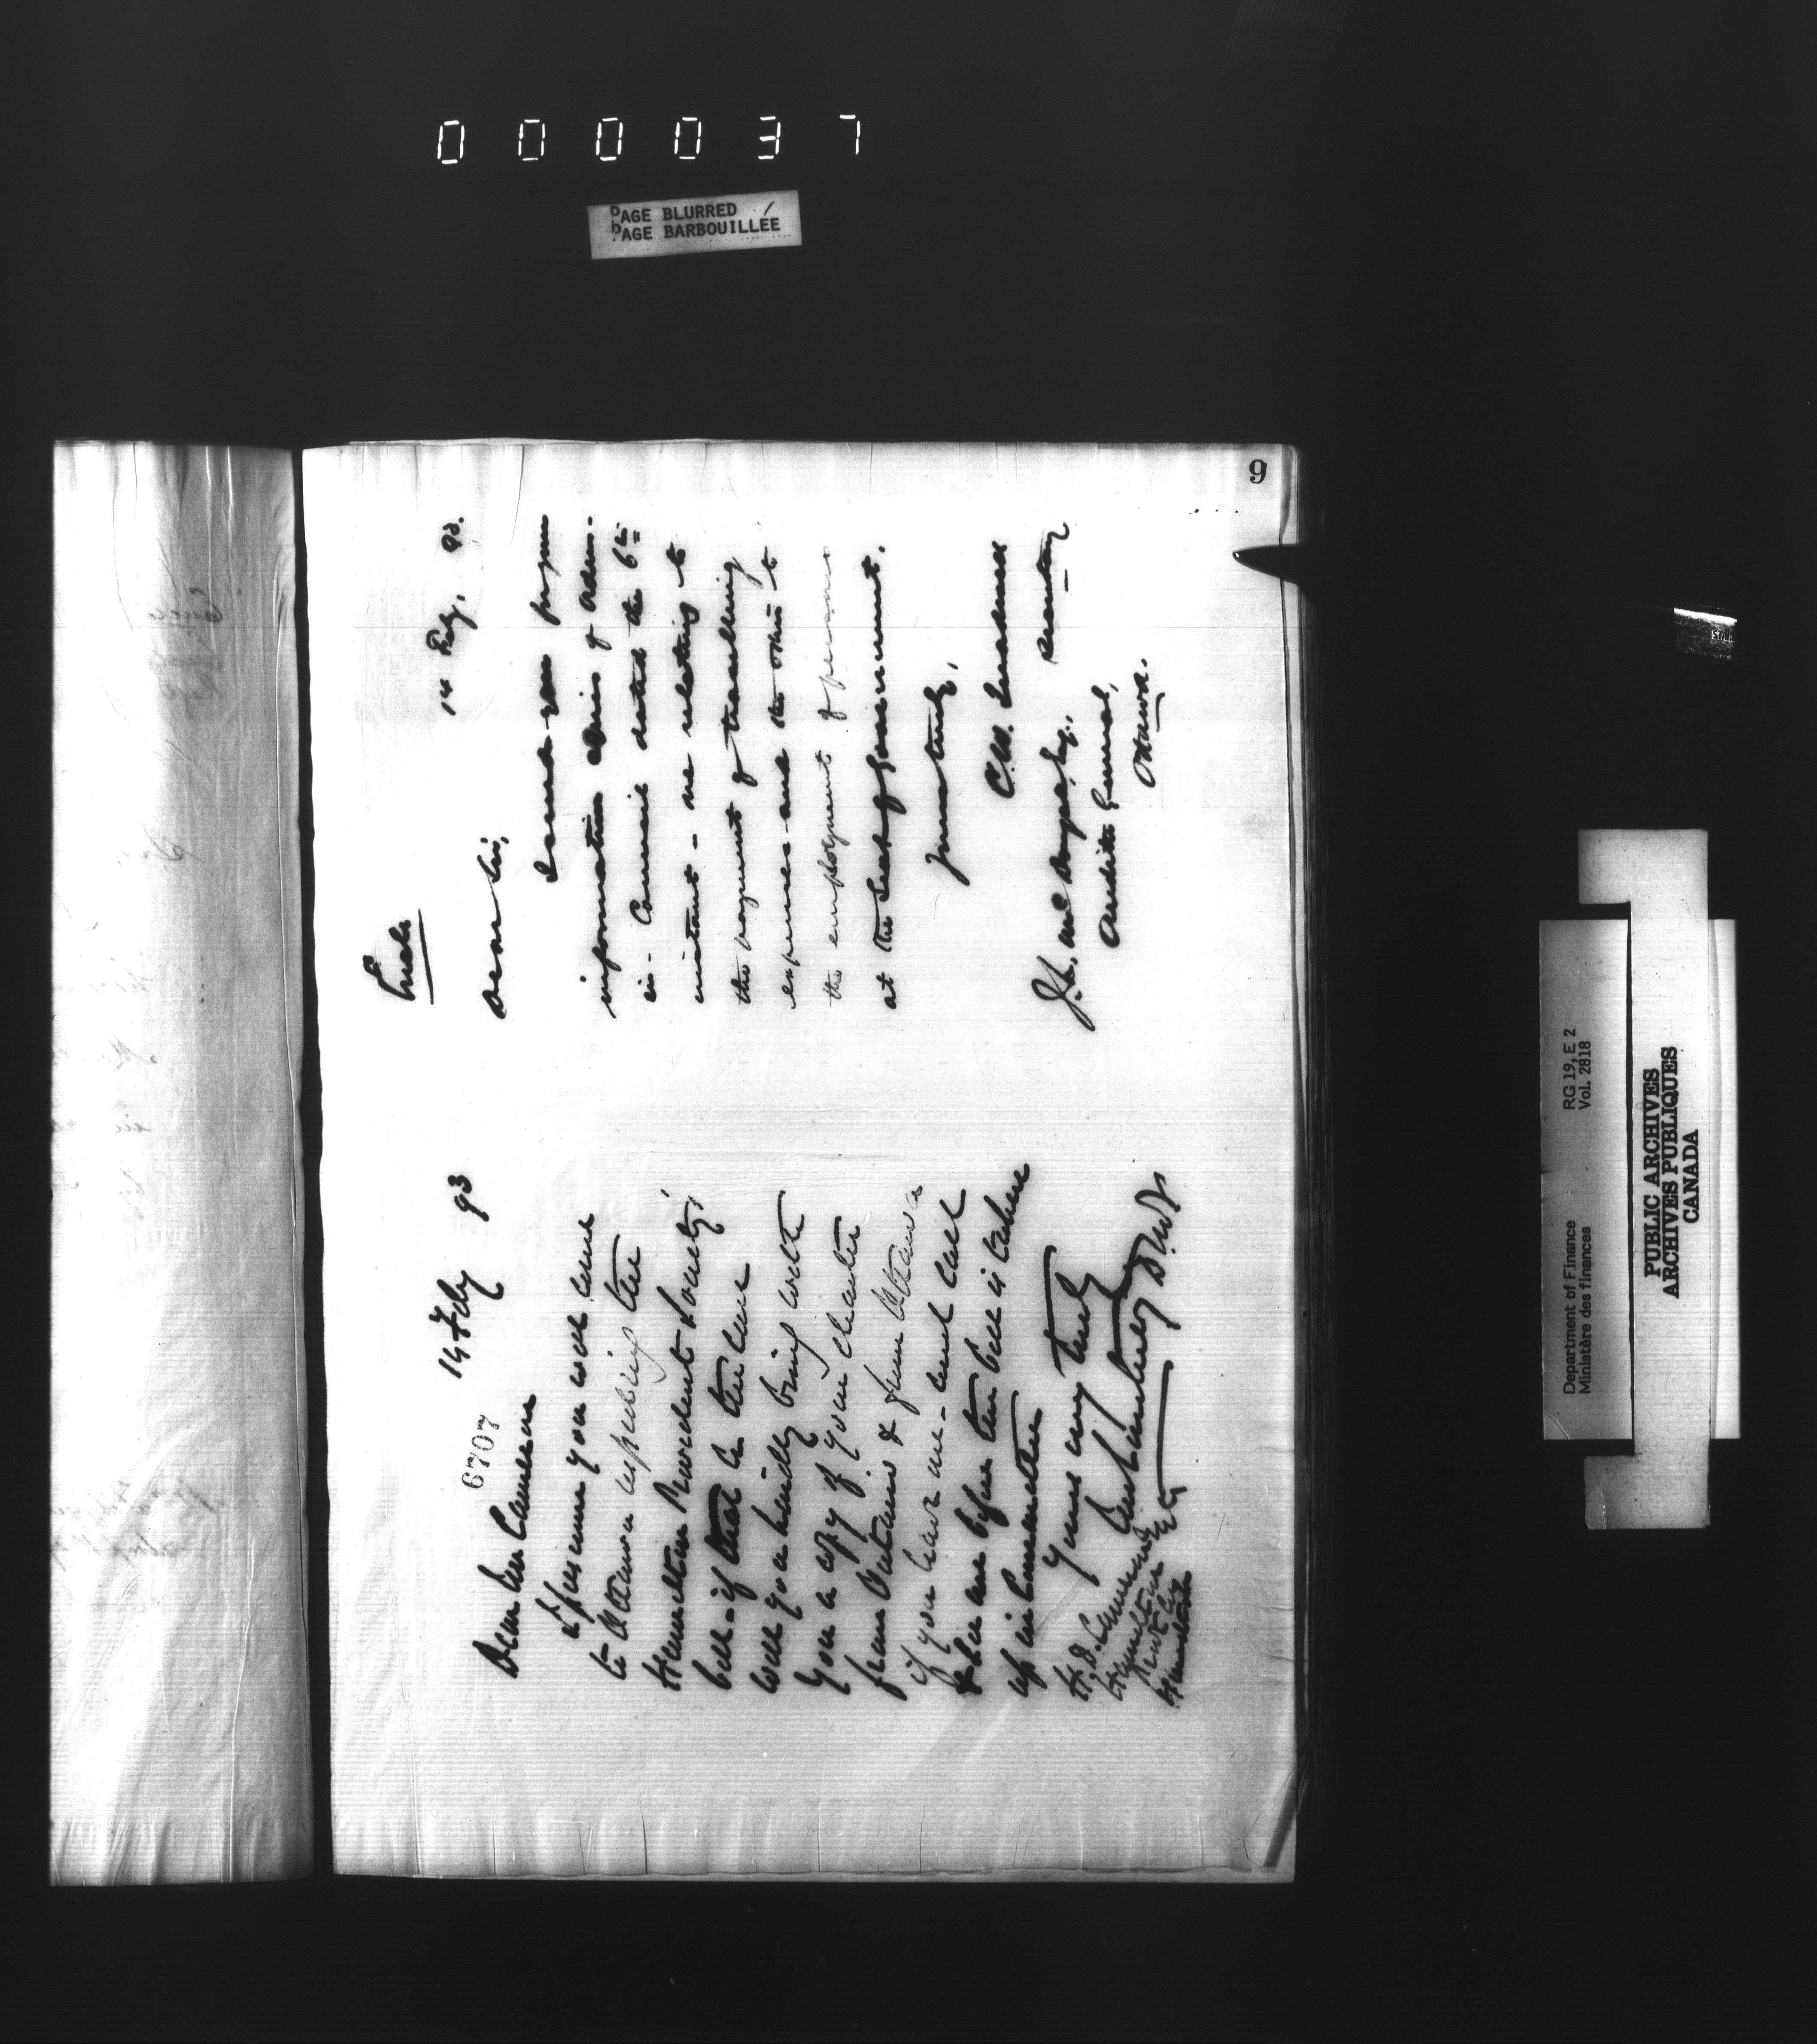 000037
PAGE BLURRED
PAGE BARBOUILLÉE
9
6707
14 Feby 93
Dear Mr Cameron
I presume you will come
to Ottawa respecting the
Hamilton Provident Society's
bill - if that be the case
will you kindly bring with
you a copy of your charter
from Ontario & from Ottawa
if you have one - and call
& see me before the bill is taken
up in Committee
Yours very truly
D.M.F.
H.D. Cameron Esq
Hamilton
Hamilton
14 Feby. 93.
Dear Sir,
I send you for your
information copies of Orders-
in-Council dated the 6th
instant - one relating to
the payment of travelling
expenses and the other to
the employment of persons
at the Seat of Government.
Yours truly,
Secretary
J.L. McDougall, Esq.,
Auditor General,
Ottawa.
Department of Finance
Ministère des finances
RG 19, E 2
Vol. 2818
PUBLIC ARCHIVES
ARCHIVES PUBLIQUES
CANADA